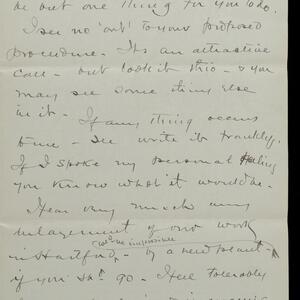 be but one thing for you to do.
I see no "out" to your proposed
procedure. Its an attractive
call - but look it thro - & you
may see some thing else
in it. If any thing occurs
to me - I'll write it frankly.
If I spoke my personal feeling
you know what it would be.
I fear very much any
enlargement of our work
will be impossible
in Hartford, by a new plant -
if you shd go. I feel tolerably